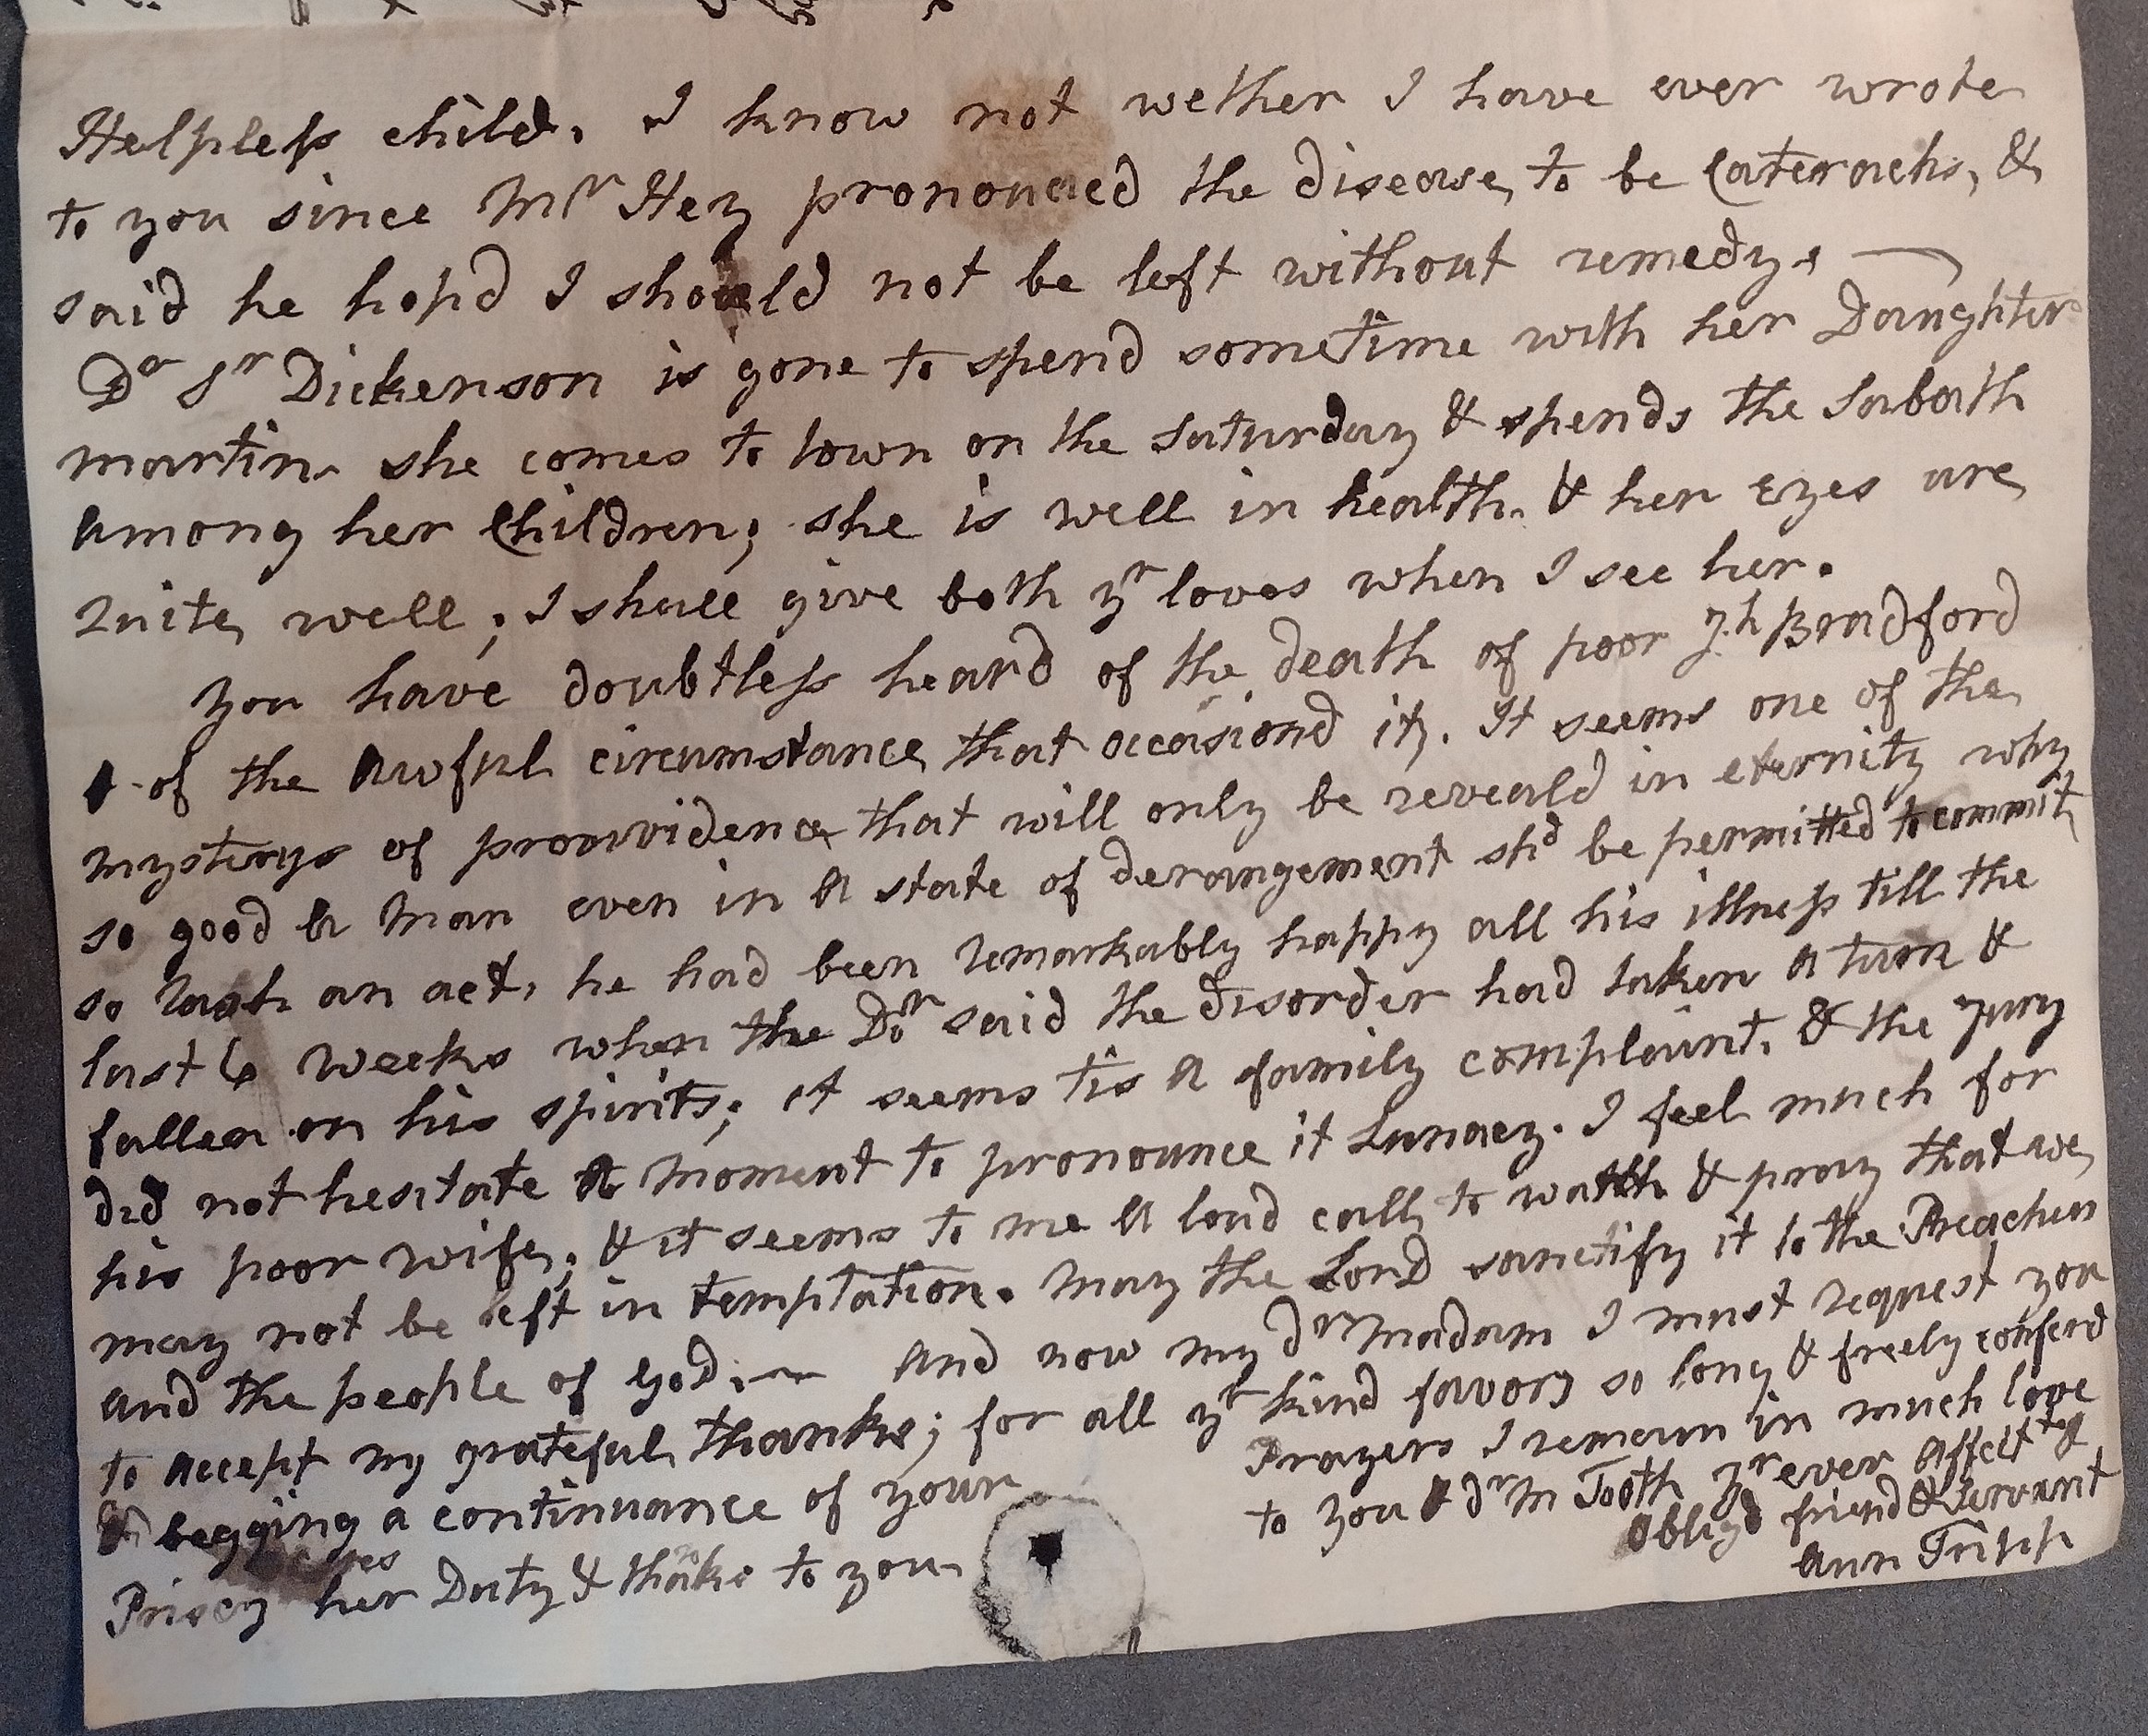 Helpless child. I know not wether I have ever wrote
to you since Mr Hey pronounced the disease to be Caterachs, &
said he hopd I should not be left without remedy.
Dr Sr Dickenson is gone to spend sometime with her Daughter
martin she comes to town on the Saturday & spends the Sabath
among her Children; she is well in health. & her Eyes are
Quite well; I shall give both yr loves when I see her.
You have doubtless heard of the death of poor Jh Bradford
of the Awful circumstance that occasiond it. It seems one of the
mysterys of providence that will only be reveald in eternity why
so good a Man even in A state of derangement shd be permitted to commit
so rash an act, he had been remarkably happy all his illness till the
last 6 weeks when the Dor said the disorder had taken A turn &
fallen on his spirits; it seems tis A family complaint. & the Jury
did not hesitate A Moment to pronounce it Lunacy. I feel much for
his poor wife; & it seems to me A loud call to watch & pray that we
may not be left in temptation. May the Lord sanctify it to the Preachers
and the people of God. And now my dr Madam I must request you
to Accept my grateful thanks; for all yr kind favors so long & freely conferd
& begging a continuance of your Prayers I remain in much love
to you & dr Mr Tooth yr ever Affectly
Obligd friend & Servant
Ann Tripp
Priscy her Duty & thanks to you